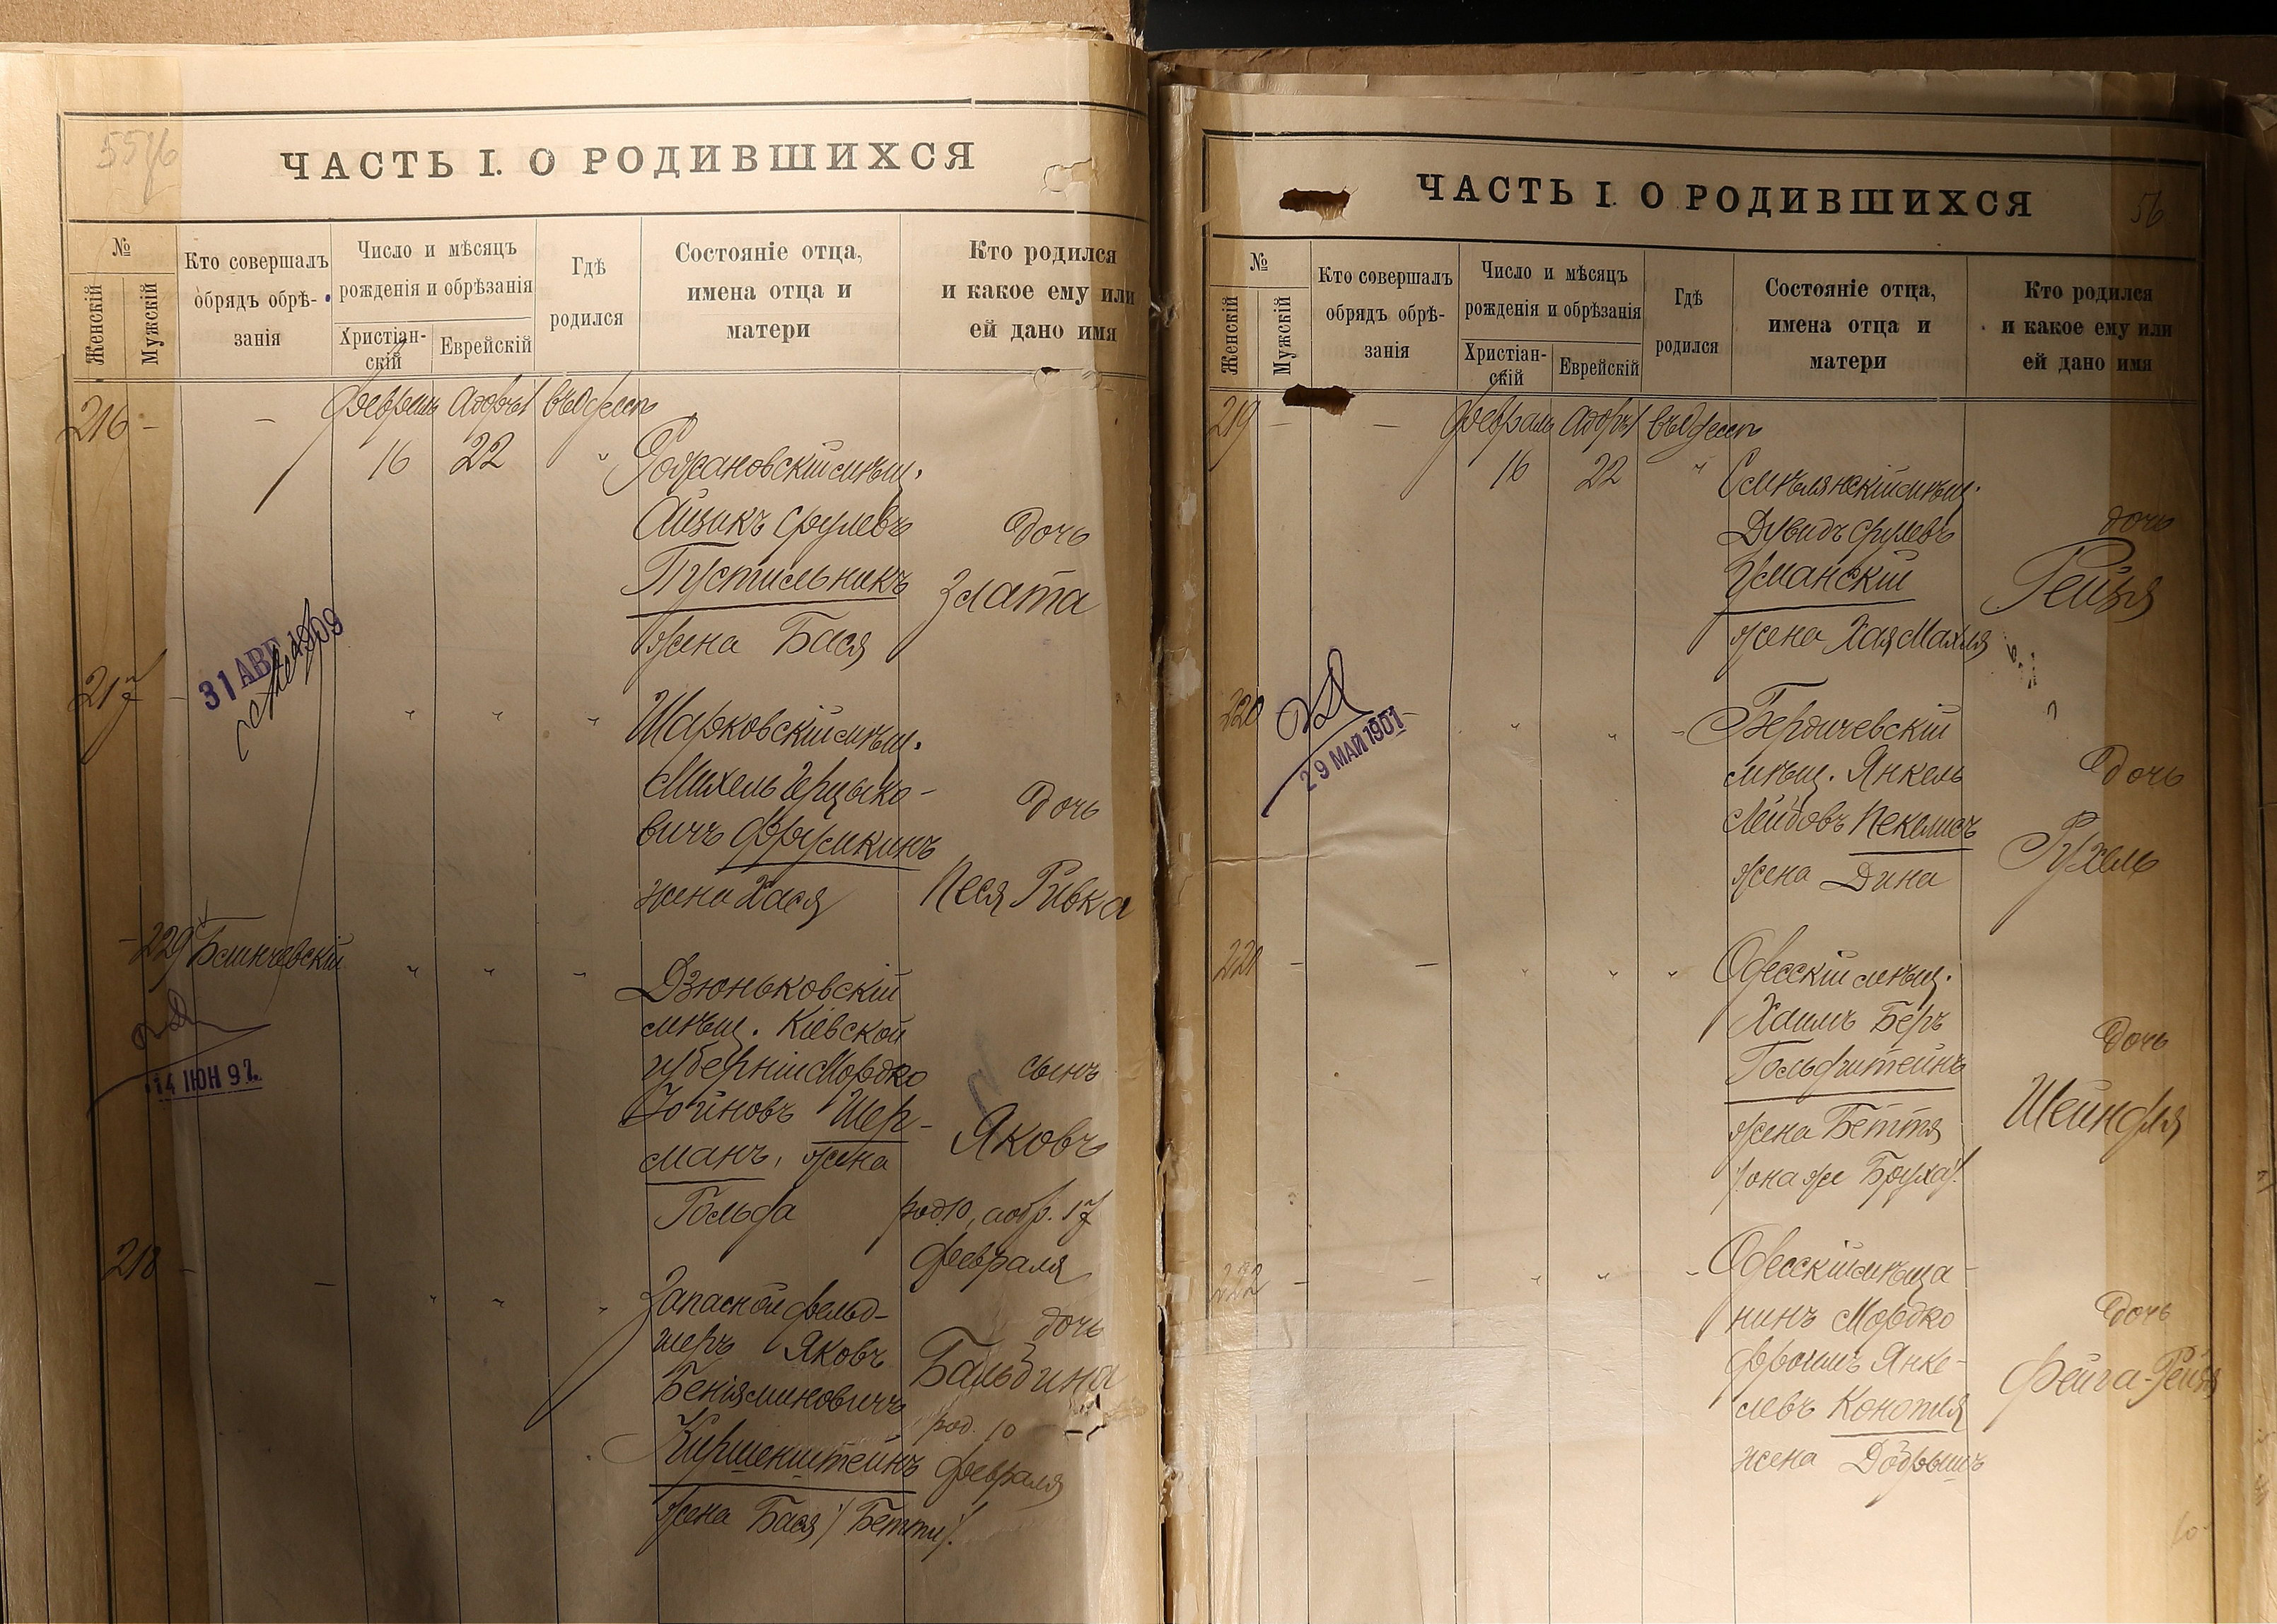 55
ЧАСТЬ I. О РОДИВШИХСЯ
№
Женскій
Мужскій
Кто совершалъ
обрядъ обрѣ-
занія
Число и мѣсяцъ
рожденія и обрѣзанія
Христіан-
скій
Еврейскій
Гдѣ
родился
Состояніе отца,
имена отца и
матери
Кто родился
и какое ему или
ей дано имя
216 - - Февраль Адаръ 1 въ Одессѣ
16 22 " мѣщ.
Айзикъ Срулевъ дочь
Пустильникъ Злата
жена Бася
31 АВГ 1909
217 - " " " Шарковскій мѣщ.
Михель Герцыко-
вичъ Фрумкинъ дочь
жена Хася Песя Ривка
- 229 " " " Дзюньковскій
мѣщ. Кіевской
губерніи Мордко сынъ
14 ІЮН 97.
Іойновъ Шер-
манъ, жена Яковъ
Гольда род. 10, а обр. 17
февраля
218 - - " " " Запасной фельд-
шеръ Яковъ дочь
Беніяминовичъ Бальбина
Киршенштейнъ род. 10
февраля
жена Бася /Бетти/.
56
ЧАСТЬ I. О РОДИВШИХСЯ
№
Женскій
Мужскій
Кто совершалъ
обрядъ обрѣ-
занія
Число и мѣсяцъ
рожденія и обрѣзанія
Христіан-
скій
Еврейскій
Гдѣ
родился
Состояніе отца,
имена отца и
матери
Кто родился
и какое ему или
ей дано имя
219 - - Февраль Адаръ 1 въ Одессѣ
16 22 " Смѣлянскій мѣщ.
Дувидъ Срулевъ дочь
Уманскій Рейзя
жена Хая Махля
220 - " " " Бердичевскій
29 МАЙ 1901
мѣщ. Янкель дочь
Лейбовъ Пекелисъ
жена Дина Рухель
221 - - " " " Одесскій мѣщ.
Хаимъ Беръ дочь
Гольдштейнъ
жена Беття Шейндля
/она же Бруха/.
222 - - " " " Одесскій мѣща-
нинъ Мордко дочь
Фроимъ Янке-
левъ Конотля Фейга-Рейзя
жена Добрышъ